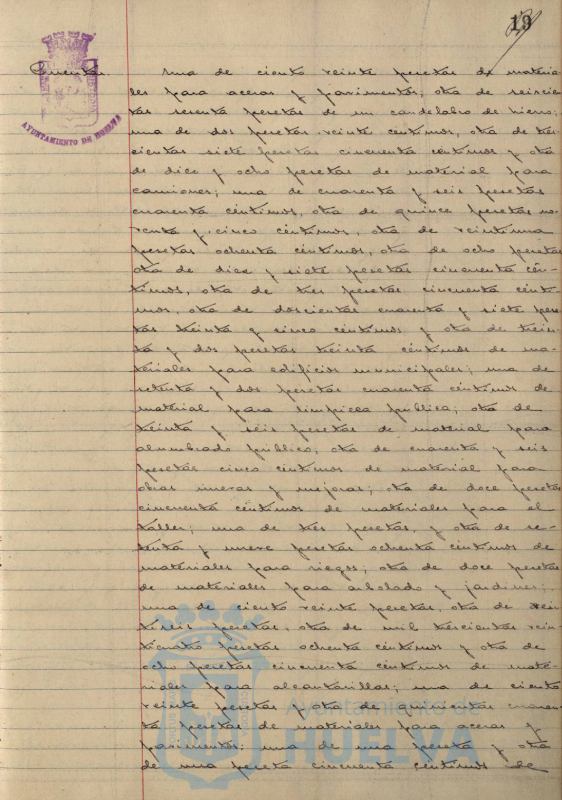 19
AYUNTAMIENTO DE HUELVA
Cuentas. una de ciento veinte pesetas de materia-
les para aceras y pavimentos; otra de seiscien-
tas sesenta pesetas de un candelabro de hierro;
una de dos pesetas veinte céntimos, otra de tres-
cientas siete pesetas cincuenta céntimos y otra
de diez y ocho pesetas de material para
camiones; una de cuarenta y seis pesetas
cuarenta céntimos, otra de quince pesetas no-
venta y cinco céntimos, otra de veintiuna
pesetas ochenta céntimos, otra de ocho pesetas
otra de diez y siete pesetas cincuenta cén-
timos, otra de tres pesetas cincuenta cénti-
mos, otra de doscientas cuarenta y siete pese-
tas treinta y cinco céntimos y otra de trein-
ta y dos pesetas treinta céntimos de ma-
teriales para edificios municipales; una de
setenta y dos pesetas cuarenta céntimos de
material para limpieza pública; otra de
treinta y seis pesetas de material para
alumbrado público; otra de cuarenta y seis
pesetas cinco céntimos de material para
obras nuevas y mejoras; otra de doce pesetas
cincuenta céntimos de materiales para el
taller; una de tres pesetas, y otra de se-
tenta y nueve pesetas ochenta céntimos de
materiales para riegos; otra de doce pesetas
de materiales para arbolado y jardines;
una de ciento veinte pesetas, otra de vein-
tiseis pesetas, otra de mil trescientas vein-
ticuatro pesetas ochenta céntimos y otra de
ocho pesetas cincuenta céntimos de mate-
riales para alcantarillas; una de ciento
veinte pesetas y otra de quinientas cuaren-
ta pesetas de materiales para aceras y
pavimentos; una de una peseta y otra
de una peseta cincuenta céntimos de
Ayuntamiento de
HUELVA